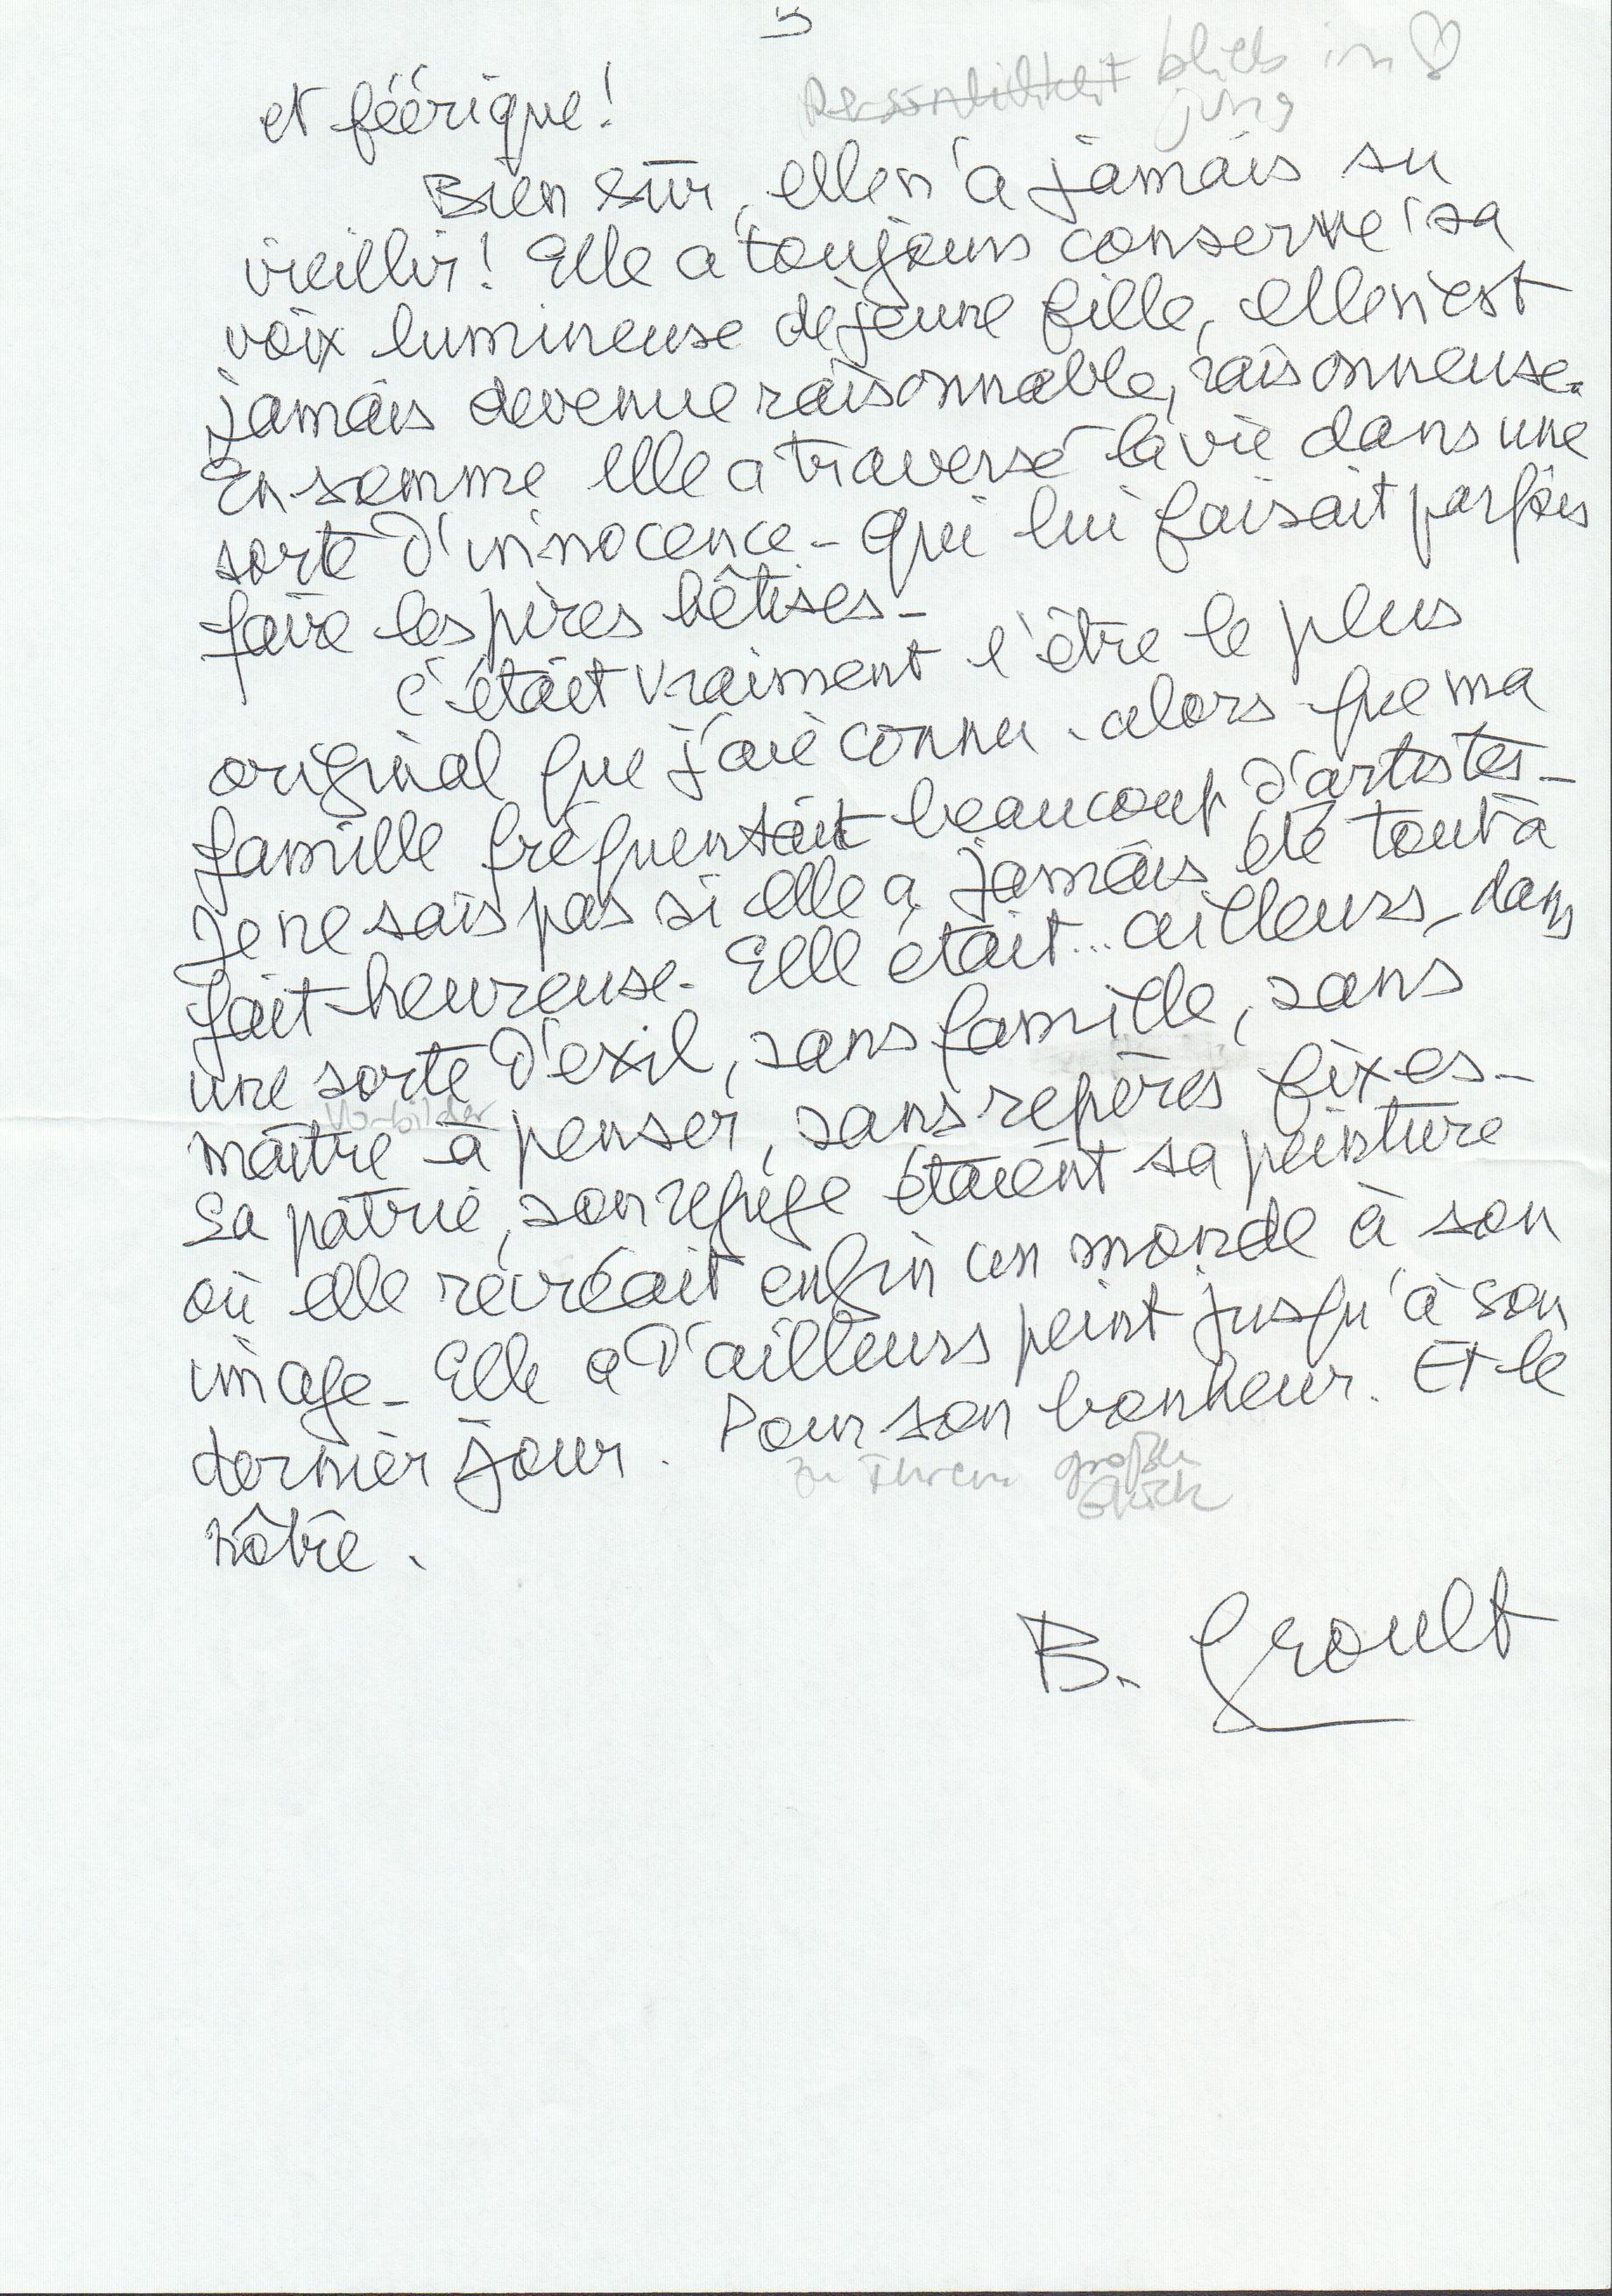 et féérique!
Persönlichkeit blieb im ♡
jung
Bien sûr, elle n'a jamais su
vieillir! Elle a toujours conservé sa
voix lumineuse de jeune fille, elle n'est
jamais devenue raisonnable, raisonneuse.
En somme elle a traversé la vie dans une
sorte d'innocence - qui lui faisait parfois
faire les pires bêtises -
C'était vraiment l'être le plus
original que j'aie connu. alors que ma
famille fréquentait beaucoup d'artistes -
Je ne sais pas si elle a jamais été tout à
fait heureuse. Elle était... ailleurs, dans
une sorte d'exil, sans famille, sans
Vorbilder
maître à penser, sans repères fixes -
Sa patrie, son refuge étaient sa peinture
où elle recréait enfin un monde à son
image - Elle a d'ailleurs peint jusqu'à son
dernier jour. Pour son bonheur. Et le
zu Ihrem großen
Glück
nôtre.
B. Groult